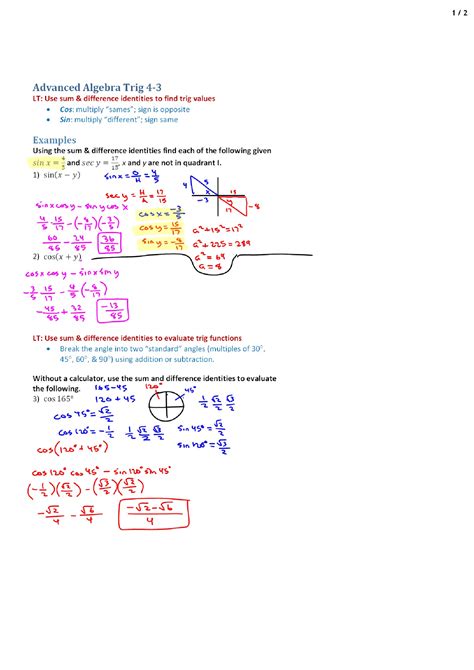 1 / 2
Advanced Algebra Trig 4-3
LT: Use sum & difference identities to find trig values
• Cos: multiply "sames"; sign is opposite
• Sin: multiply "different"; sign same
Examples
Using the sum & difference identities find each of the following given
sin x = 4/5 and sec y = 17/15, x and y are not in quadrant I.
1) sin(x − y)
sin x = O/H = 4/5
4 5 -3 x 15 y 17 -8
sec y = H/A = 17/15
sin x cos y − sin y cos x
cos x = -3/5
4/5 · 15/17 − (-8/17)(-3/5)
cos y = 15/17
a² + 15² = 17²
sin y = -8/17
a² + 225 = 289
60/85 − 24/85 36/85
a² = 64
a = 8
2) cos(x + y)
cos x cos y − sin x sin y
-3/5 · 15/17 − 4/5 (-8/17)
-45/85 + 32/85 -13/85
LT: Use sum & difference identities to evaluate trig functions
• Break the angle into two "standard" angles (multiples of 30°,
45°, 60°, & 90°) using addition or subtraction.
Without a calculator, use the sum and difference identities to evaluate
the following. 165-45 120° 45°
3) cos 165° 120 + 45
1/2 √2/2 √3/2
cos 45° = √2/2
cos 120° = -1/2 1/2 √2/2 √3/2
sin 45° = √2/2
sin 120° = √3/2
cos(120° + 45°)
cos 120° cos 45° − sin 120° sin 45°
(-1/2)(√2/2) − (√3/2)(√2/2)
-√2/4 − √6/4 -√2-√6/4